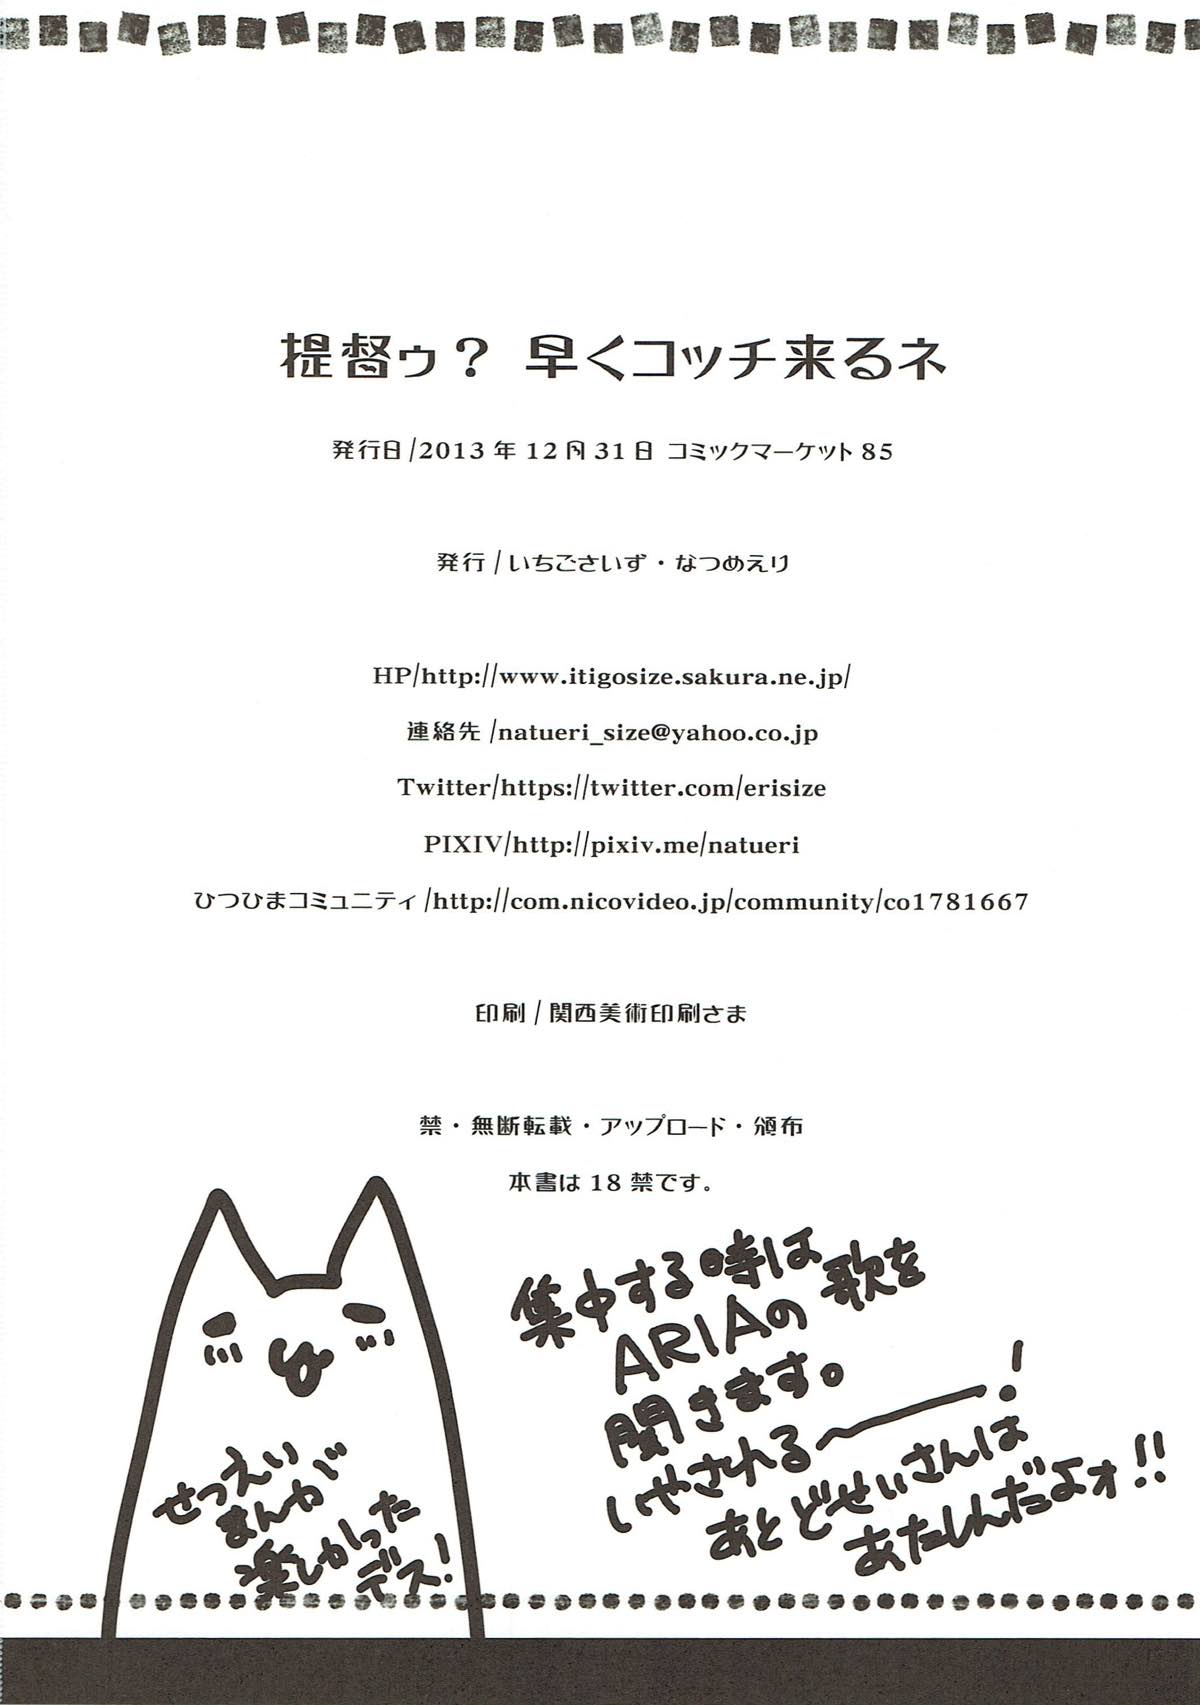 提督ゥ？ 早くコッチ来るネ
発行日/2013年12月31日 コミックマーケット85
発行/いちごさいず・なつめえり
HP/http://www.itigosize.sakura.ne.jp/
連絡先/natueri_size@yahoo.co.jp
Twitter/https://twitter.com/erisize
PIXIV/http://pixiv.me/natueri
ひつひまコミュニティ/http://com.nicovideo.jp/community/co1781667
印刷/関西美術印刷さま
禁・無断転載・アップロード・頒布
本書は18禁です。
集中する時は
ARIAの歌を
聞きます。
いやされる〜ー！
あとどせいさんは
あたしんだよォ!!
せつえい
まんが
楽しかった
デス！